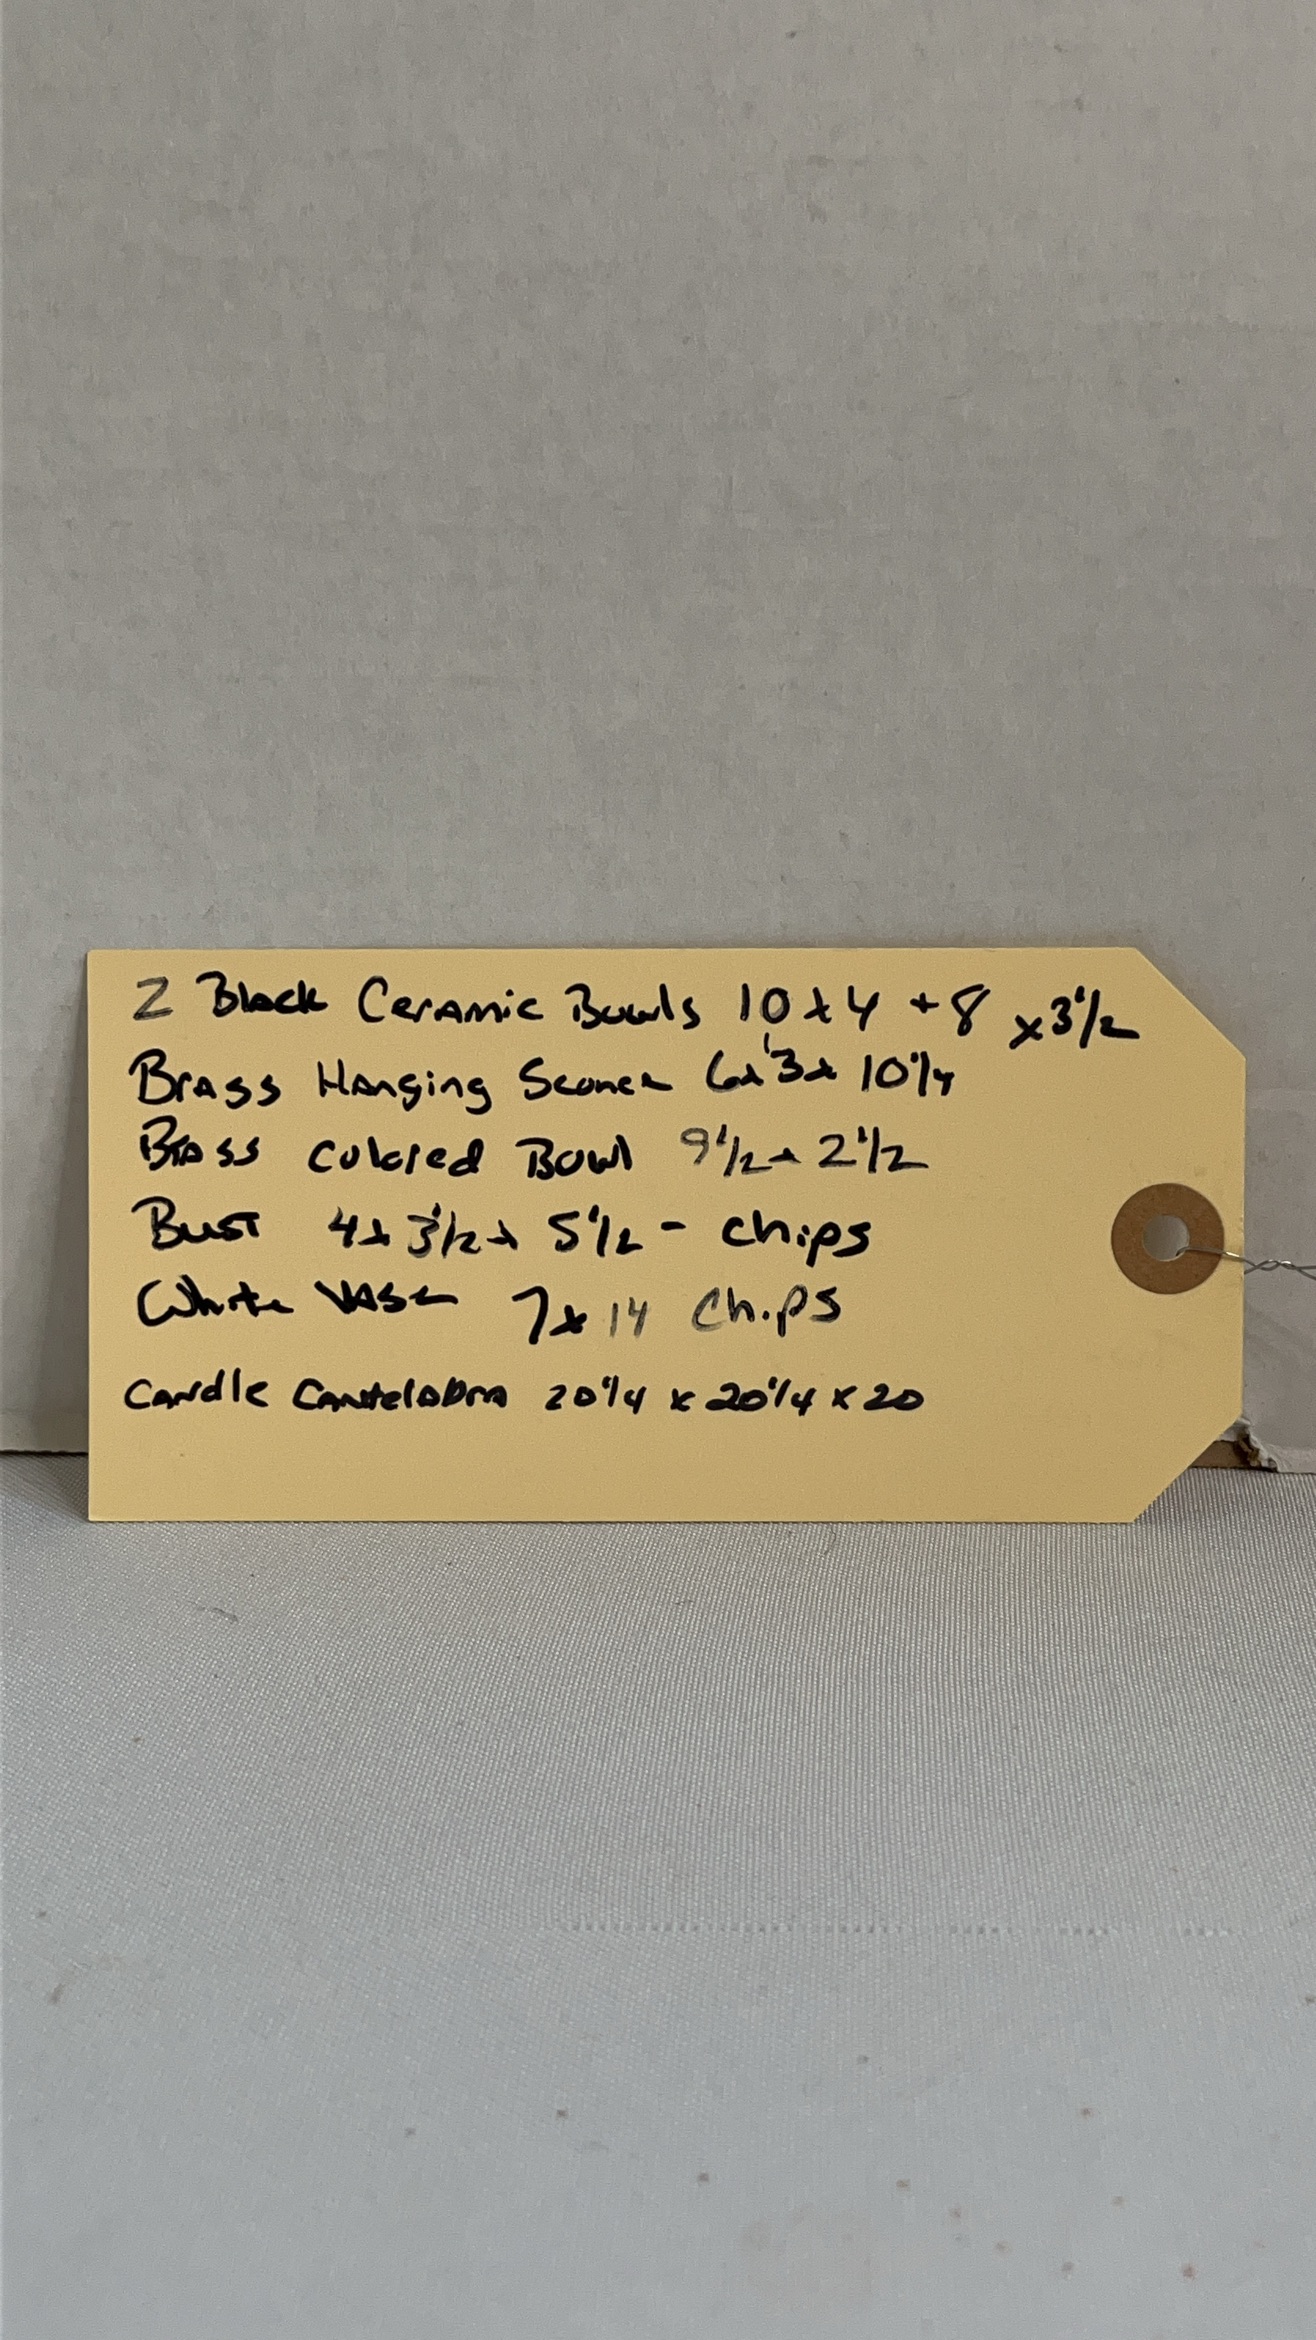 2 Black Ceramic Bowls 10 x 4 + 8 x 3 1/2
Brass Hanging Sconce 6 x 3 x 10 1/4
Brass Colored Bowl 9 1/2 x 2 1/2
Bust 4 x 3 1/2 x 5 1/2 - Chips
White Vase 7 x 14 Chips
Candle Cantelabra 20 1/4 x 20 1/4 x 20